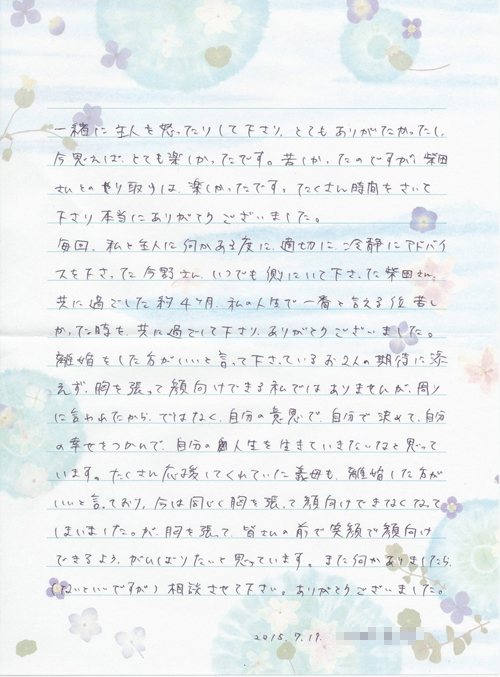 一緒に主人を怒ったりして下さり、とてもありがたかったし、
今思えば、とても楽しかったです。苦しかったのですが、柴田
さんとのやり取りは、楽しかったです。たくさん時間をさいて
下さり本当にありがとうございました。
毎回、私と主人に何かある度に、適切に、冷静にアドバイ
スを下さった今野さん、いつでも側にいて下さった柴田さん。
共に過ごした約4ヶ月、私の人生で一番と言える位苦し
かった時を、共に過ごして下さり、ありがとうございました。
離婚をした方がいいと言って下さっているお2人の期待に添
えず、胸を張って顔向けできる私ではありませんが、周り
に言われたから、ではなく、自分の意思で、自分で決めて、自分
の幸せをつかんで、自分の人生を生きていきたいなと思って
います。たくさん応援してくれていた義母も、離婚した方が
いいと言っており、今は同じく胸を張って顔向けできなくなって
しまいました。が、胸を張って、皆さんの前で笑顔で顔向け
できるよう、がんばりたいと思っています。また何かありましたら、
(ないといいですが)相談させて下さい。ありがとうございました。
2015.7.19.